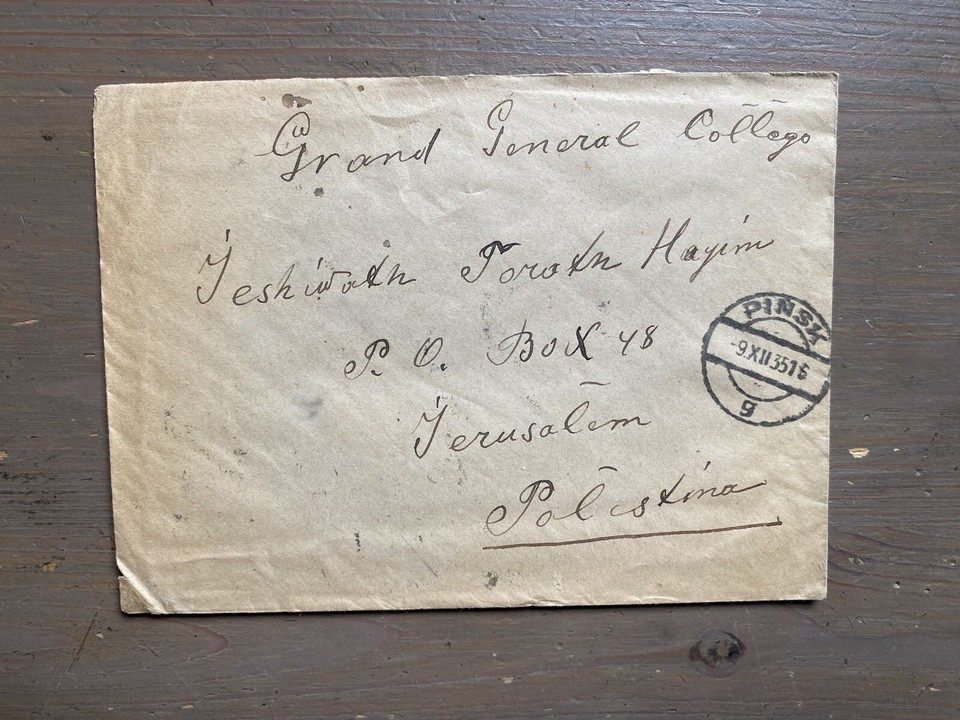 Grand General Collego
Jeshiwath Torath Hayim
P. O. Box 48
Jerusalem
Palestina
PINSK
-9.XII 35 1 6
g